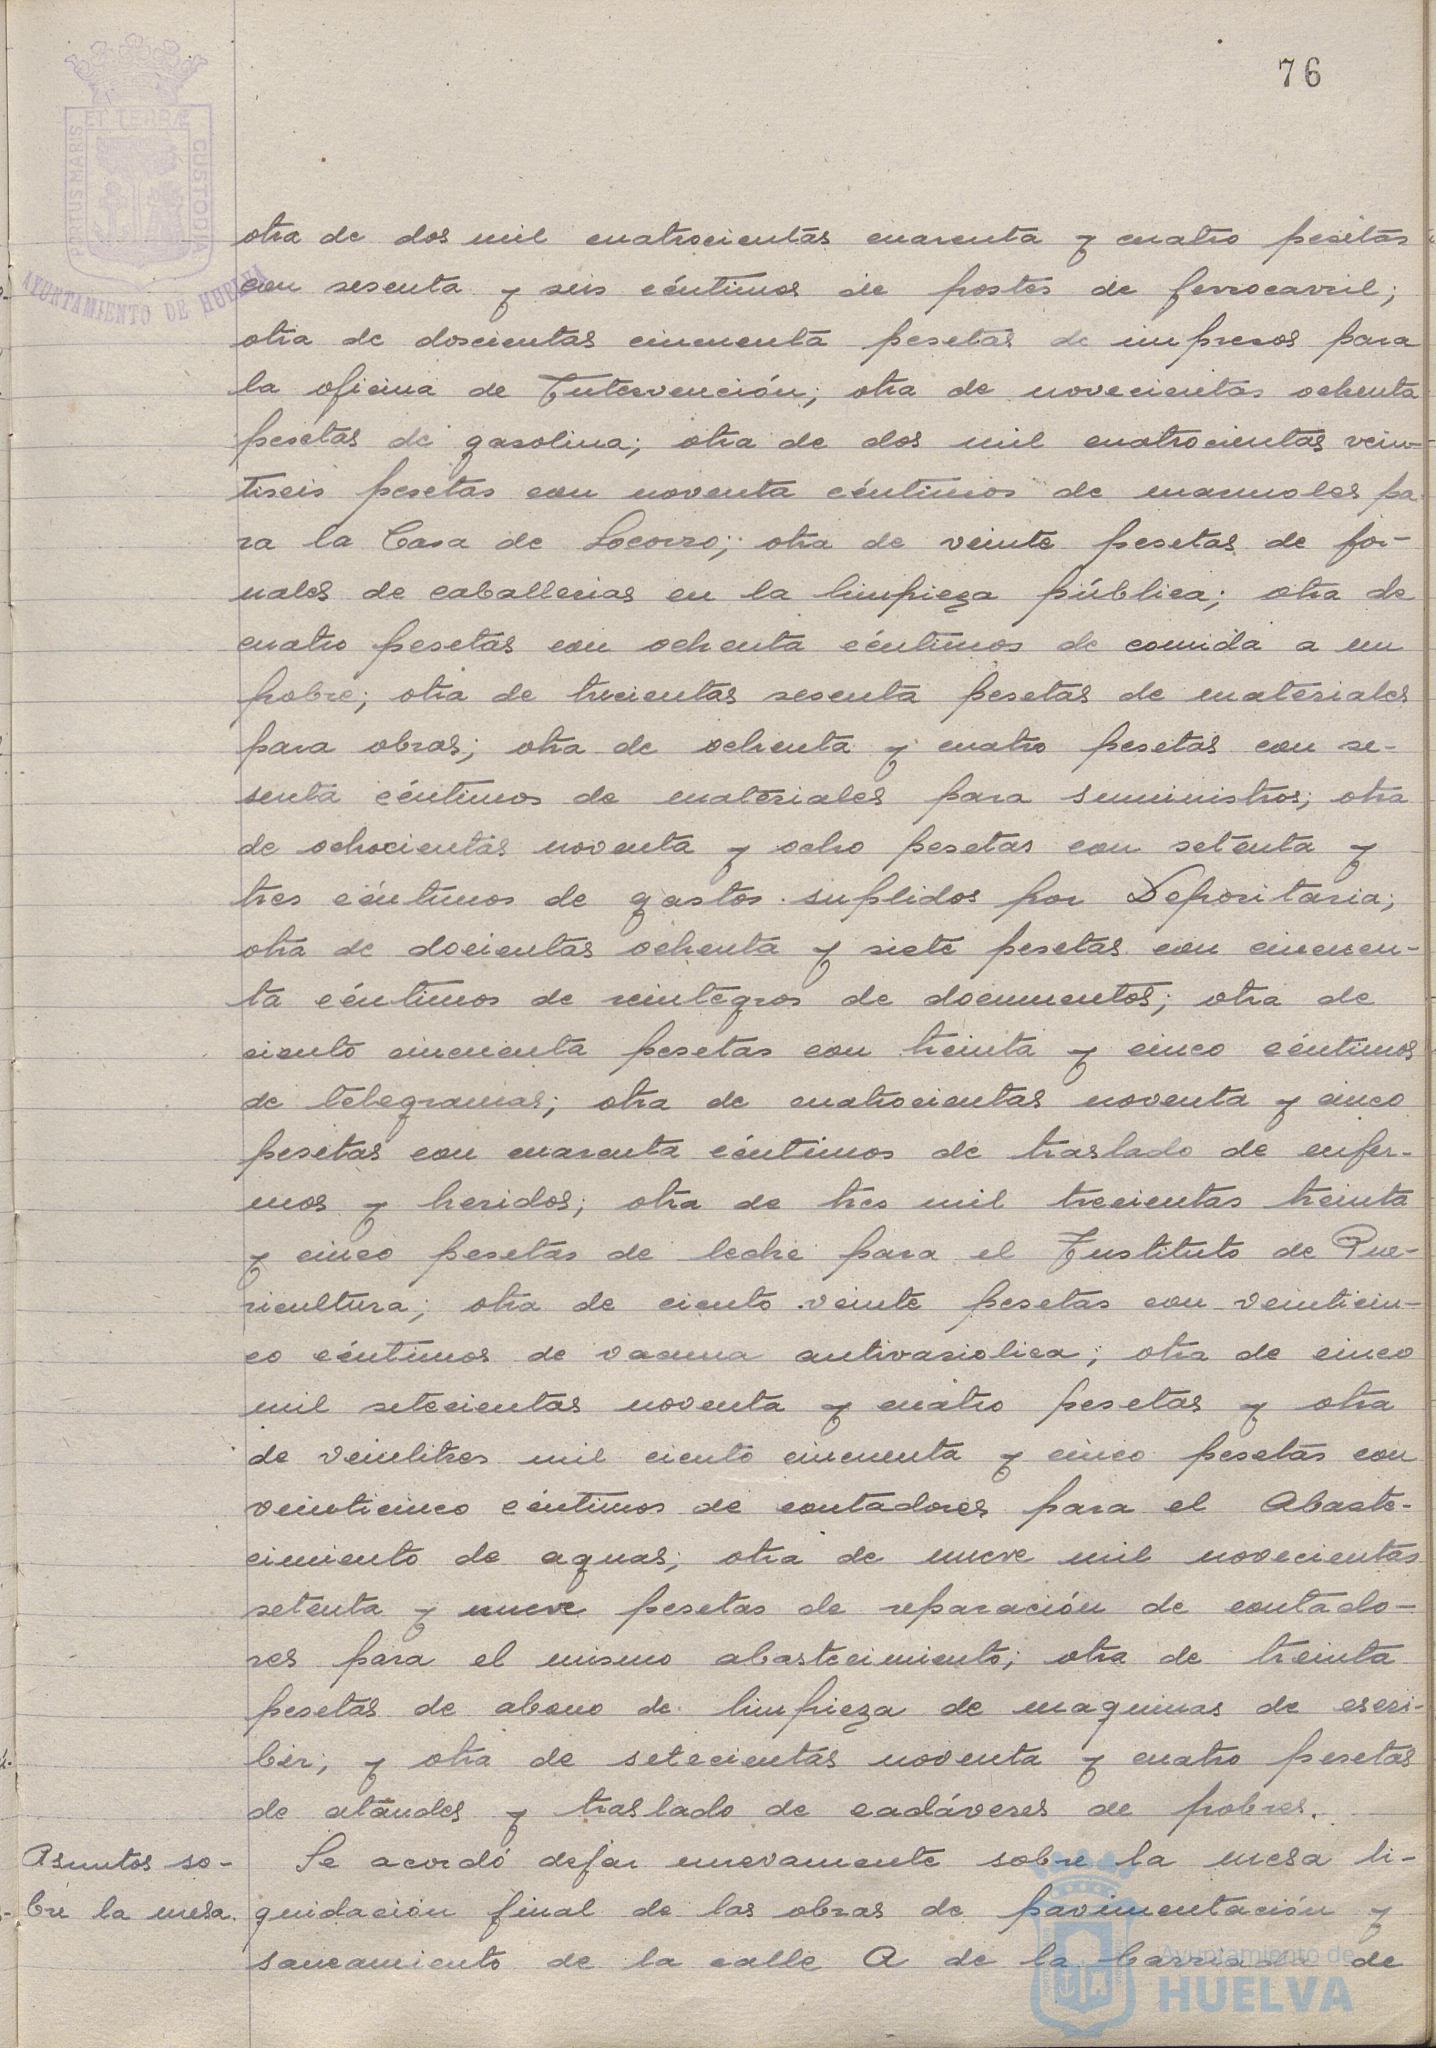 76
PORTUS MARIS ET TERRÆ CUSTODIA
AYUNTAMIENTO DE HUELVA
otra de dos mil cuatrocientas cuarenta y cuatro pesetas
con sesenta y seis céntimos de portes de ferrocarril;
otra de doscientas cincuenta pesetas de impresos para
la oficina de Intervención; otra de novecientas ochenta
pesetas de gasolina; otra de dos mil cuatrocientas vein-
tiseis pesetas con noventa céntimos de marmoles pa-
ra la Casa de Socorro; otra de veinte pesetas de jor-
nales de caballerias en la limpieza pública; otra de
cuatro pesetas con ochenta céntimos de comida a un
pobre; otra de trecientas sesenta pesetas de materiales
para obras; otra de ochenta y cuatro pesetas con se-
senta céntimos de materiales para suministros; otra
de ochocientas noventa y ocho pesetas con setenta y
tres céntimos de gastos suplidos por Depositaria;
otra de docientas ochenta y siete pesetas con cincuen-
ta céntimos de reintegros de documentos; otra de
ciento cincuenta pesetas con treinta y cinco céntimos
de telegramas; otra de cuatrocientas noventa y cinco
pesetas con cuarenta céntimos de traslado de enfer-
mos y heridos; otra de tres mil trecientas treinta
y cinco pesetas de leche para el Instituto de Pue-
ricultura; otra de ciento veinte pesetas con veinticin-
co céntimos de vacuna antivariolica; otra de cinco
mil setecientas noventa y cuatro pesetas y otra
de veintitres mil ciento cincuenta y cinco pesetas con
veinticinco céntimos de contadores para el Abaste-
cimiento de aguas; otra de nueve mil novecientas
setenta y nueve pesetas de reparación de contado-
res para el mismo abastecimiento; otra de treinta
pesetas de abono de limpieza de maquinas de escri-
bir; y otra de setecientas noventa y cuatro pesetas
de ataudes y traslado de cadáveres de pobres.
Asuntos so-
bre la mesa.
Se acordó dejar nuevamente sobre la mesa li-
quidación final de las obras de pavimentación y
saneamiento de la calle A de la barriada de
Ayuntamiento de
HUELVA